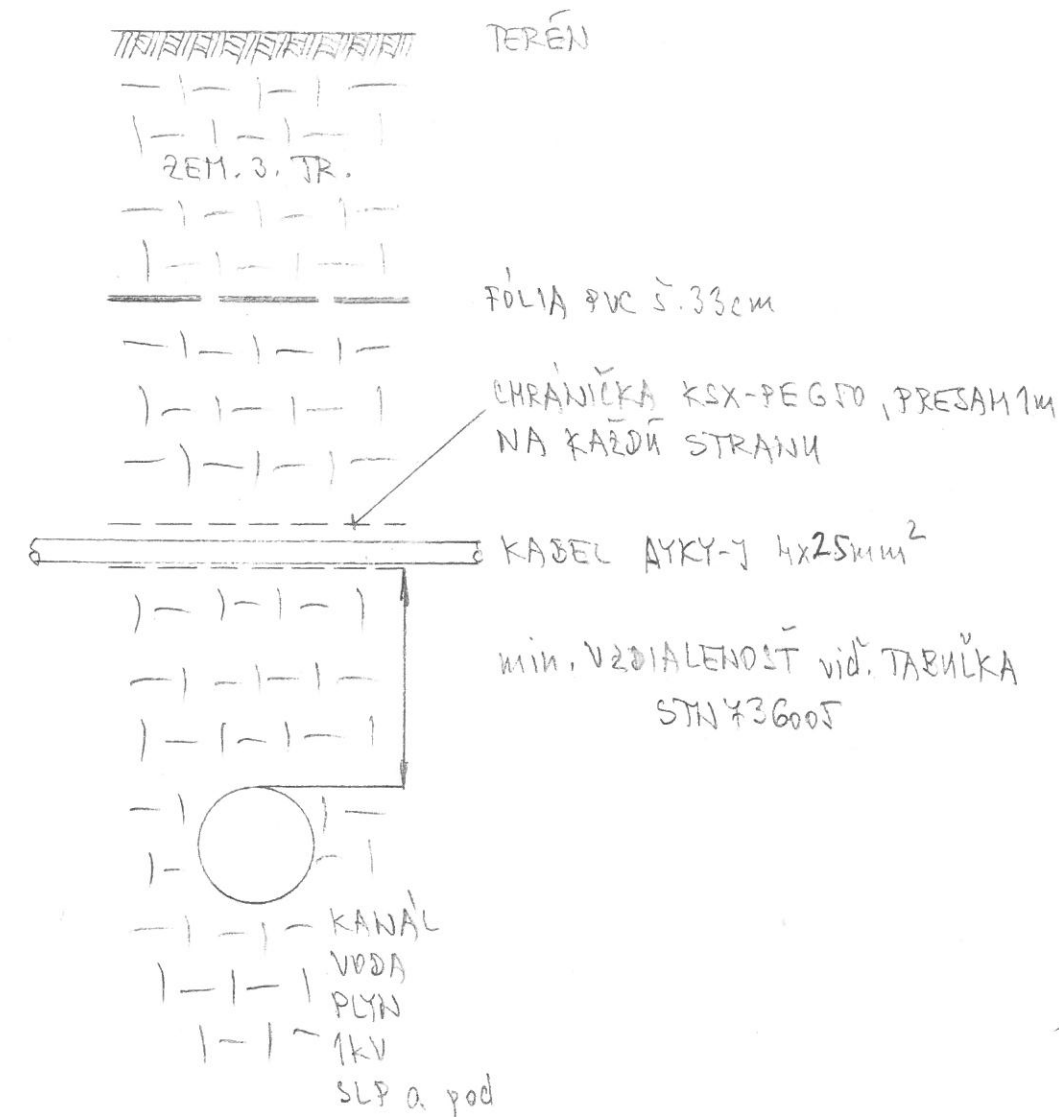 TERÉN
ZEM. 3. TR.
FÓLIA PVC š. 33cm
CHRÁNIČKA KSX-PEG50, PRESAH 1m
NA KAŽDÚ STRANU
KABEL AYKY-J 4x25mm²
min. VZDIALENOSŤ viď. TABUĽKA
STN 736005
KANÁL
VODA
PLYN
1kV
SLP a pod